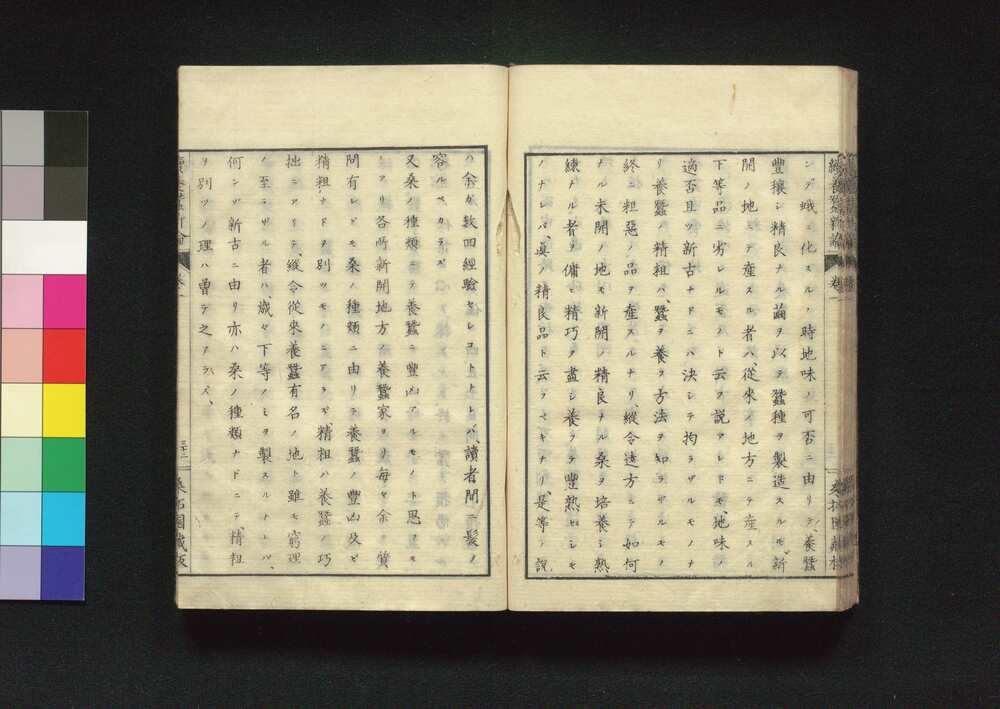 ンデ蛾ニ化スルノ時地味ノ可否ニ由リテ、養蠶
豊穰シ精良ナル繭ヲ以テ蠶種ヲ製造スルモ、新
開ノ地ニテ産スル者ハ、從來ノ地方ニテ産スル
下等品ニ劣レルモノト云フ説アレドモ、地味ノ
適否且ツ新古ナドニハ決シテ拘ラザルモノナ
リ養蠶ノ精粗ハ、蠶ヲ養フ方法ヲ知ラザルモノ
終ニ粗惡ノ品ヲ産スルナリ、縱令遠方ニテ如何
ナル未開ノ地モ新開ノ精良ナル桑ヲ培養シ熟
練ナル者ヲ傭ヒ精巧ヲ盡シ養フテ豐熟セシモ
ノナレバ、眞ノ精良品ト云フベキナリ、是等ノ説
ハ余ガ数回經驗セシコトナレバ、讀者間ニ髪ノ
容ルベカラズ
又桑ノ種類ニテ養蠶ニ豐凶アルモノト思フモ
ノアリ各所新開地方ノ養蠶家ヨリ毎々余ニ質
問有レドモ桑ノ種類ニ由リテ養蠶ノ豐凶及ビ
精粗ナドヲ別ツモノニアラズ、精粗ハ養蠶ノ巧
拙ニアリテ、縱令從來養蠶有名ノ地ト雖モ窮理
ノ至ラザル者ハ、歳々下等ノミヲ製スルナレバ、
何ンゾ新古ニ由リ亦ハ桑ノ種類ナドニテ、精粗
ヲ別ツノ理ハ曽テ之アラズ、
卷一
三十二